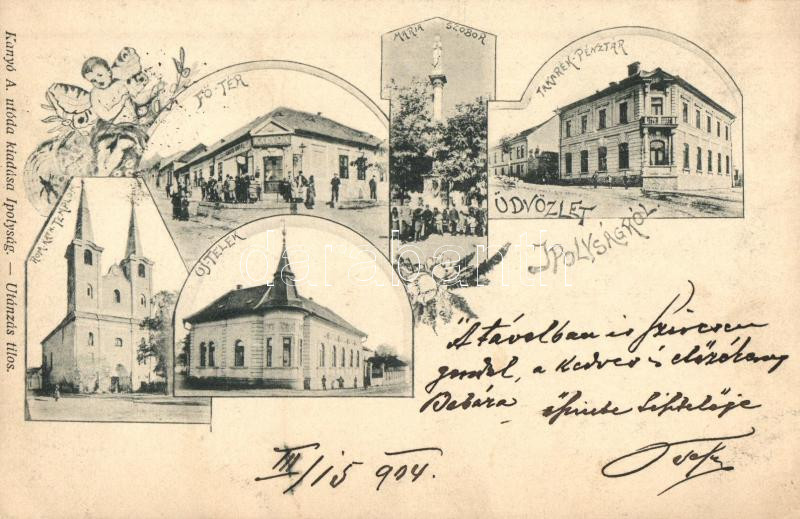 Kanyó A. utóda kiadása Ipolyság. — Utánzás tilos.
FŐ-TÉR
MÁRIA SZOBOR
TAKARÉK-PÉNZTÁR
RÓM. KATH. TEMPLOM
ÚJ-TELEK
ÜDVÖZLET
IPOLYSÁGRÓL
darabanth
A távolban is szivesen
gondol, a kedves és előzékeny
Babára
III/15 904.